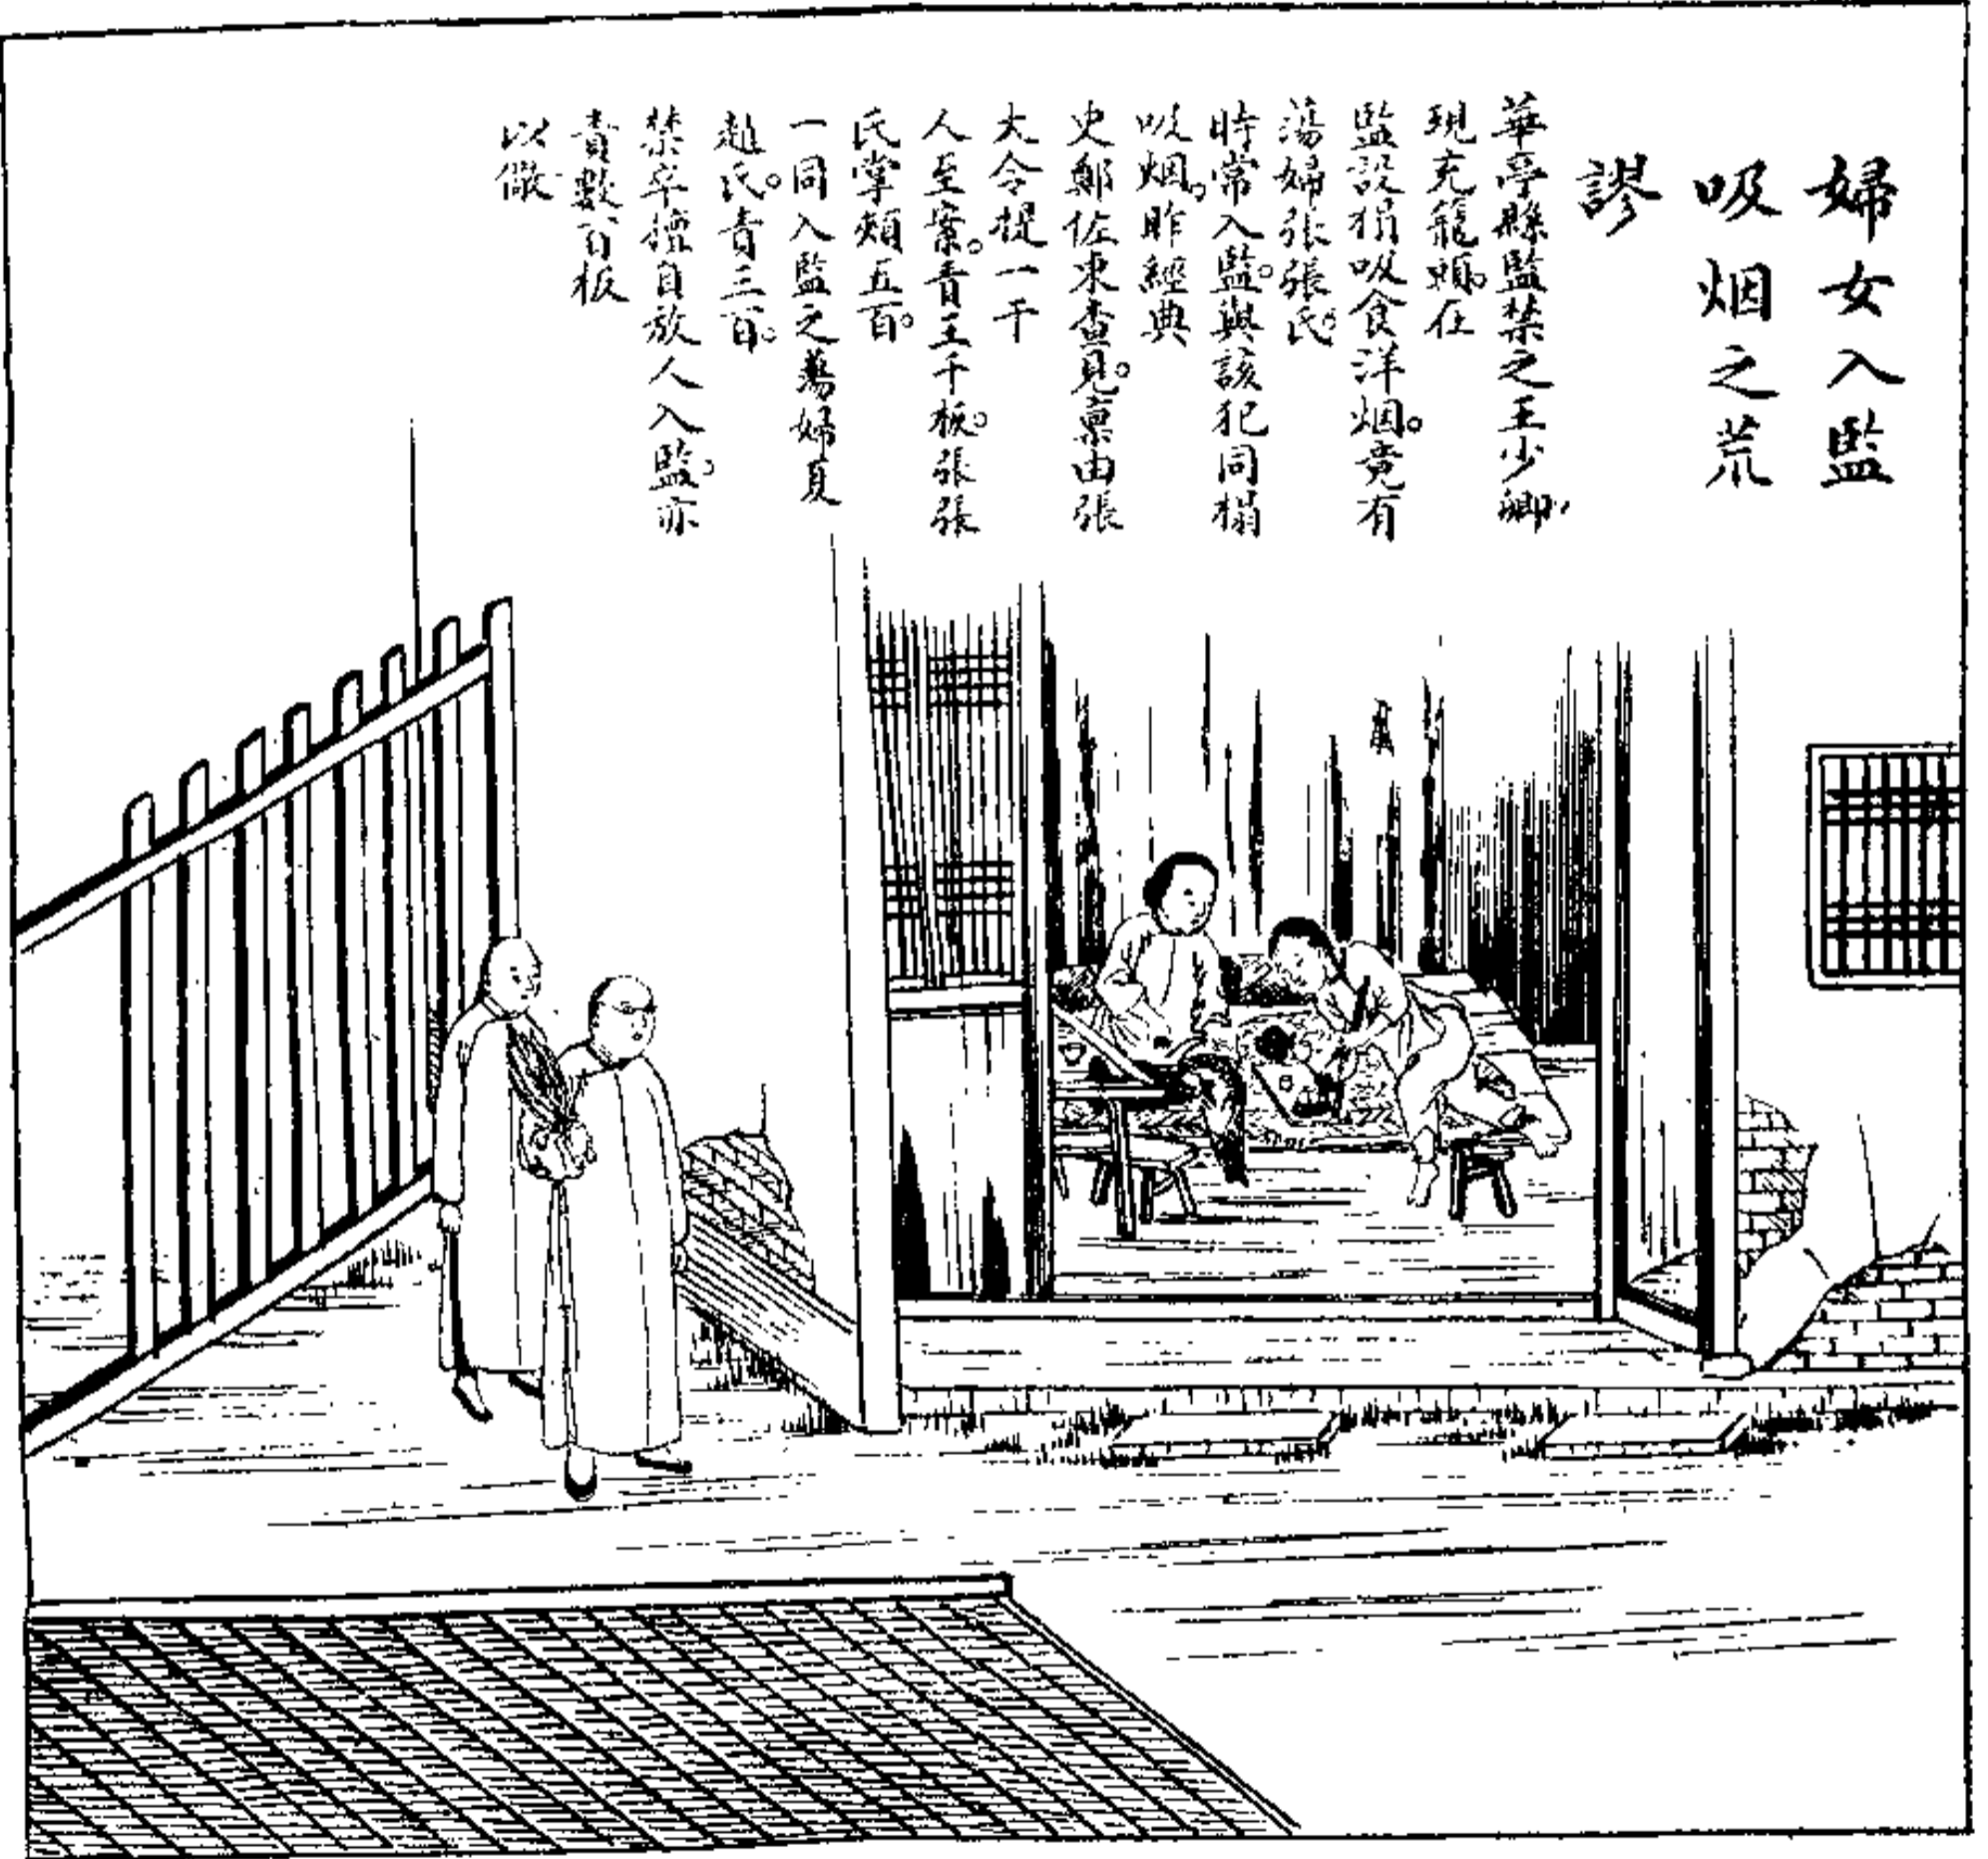 婦女入監
吸烟之荒
謬
華亭縣監禁之王少卿。
現充籠頭。在
監設榻吸食洋烟。竟有
蕩婦張張氏。
時常入監。與該犯同榻
吸烟。昨經典
史鄭佐東查見。稟由張
大令提一干
人至案。責王千板。張張
氏掌頰五百。
一同入監之蕩婦夏
趙氏。責三百。
禁卒擅自放人入監。亦
責數百板
以儆